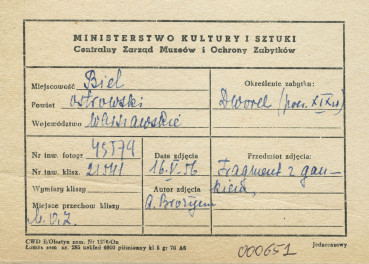 MINISTERSTWO KULTURY I SZTUKI
Centralny Zarząd Muzeów i Ochrony Zabytków
Miejscowość Biel
Powiat ostrowski
Województwo warszawskie
Określenie zabytku:
Dworek (pocz. XIX w)
Nr inw. fotogr 45574
Nr inw. klisz.
Wymiary kliszy
Miejsce przechow kliszy
Data zdjęcia
16.V.56
Autor zdjęcia
A.
Przedmiot zdjęcia:
Fragment z gan-
kiem,
CWD E/Olsztyn zam. Nr
Łomża zam. nr. 285 nakład 6000 piśmienny kl 5 gr 70 A6
Jednorazowy
000651